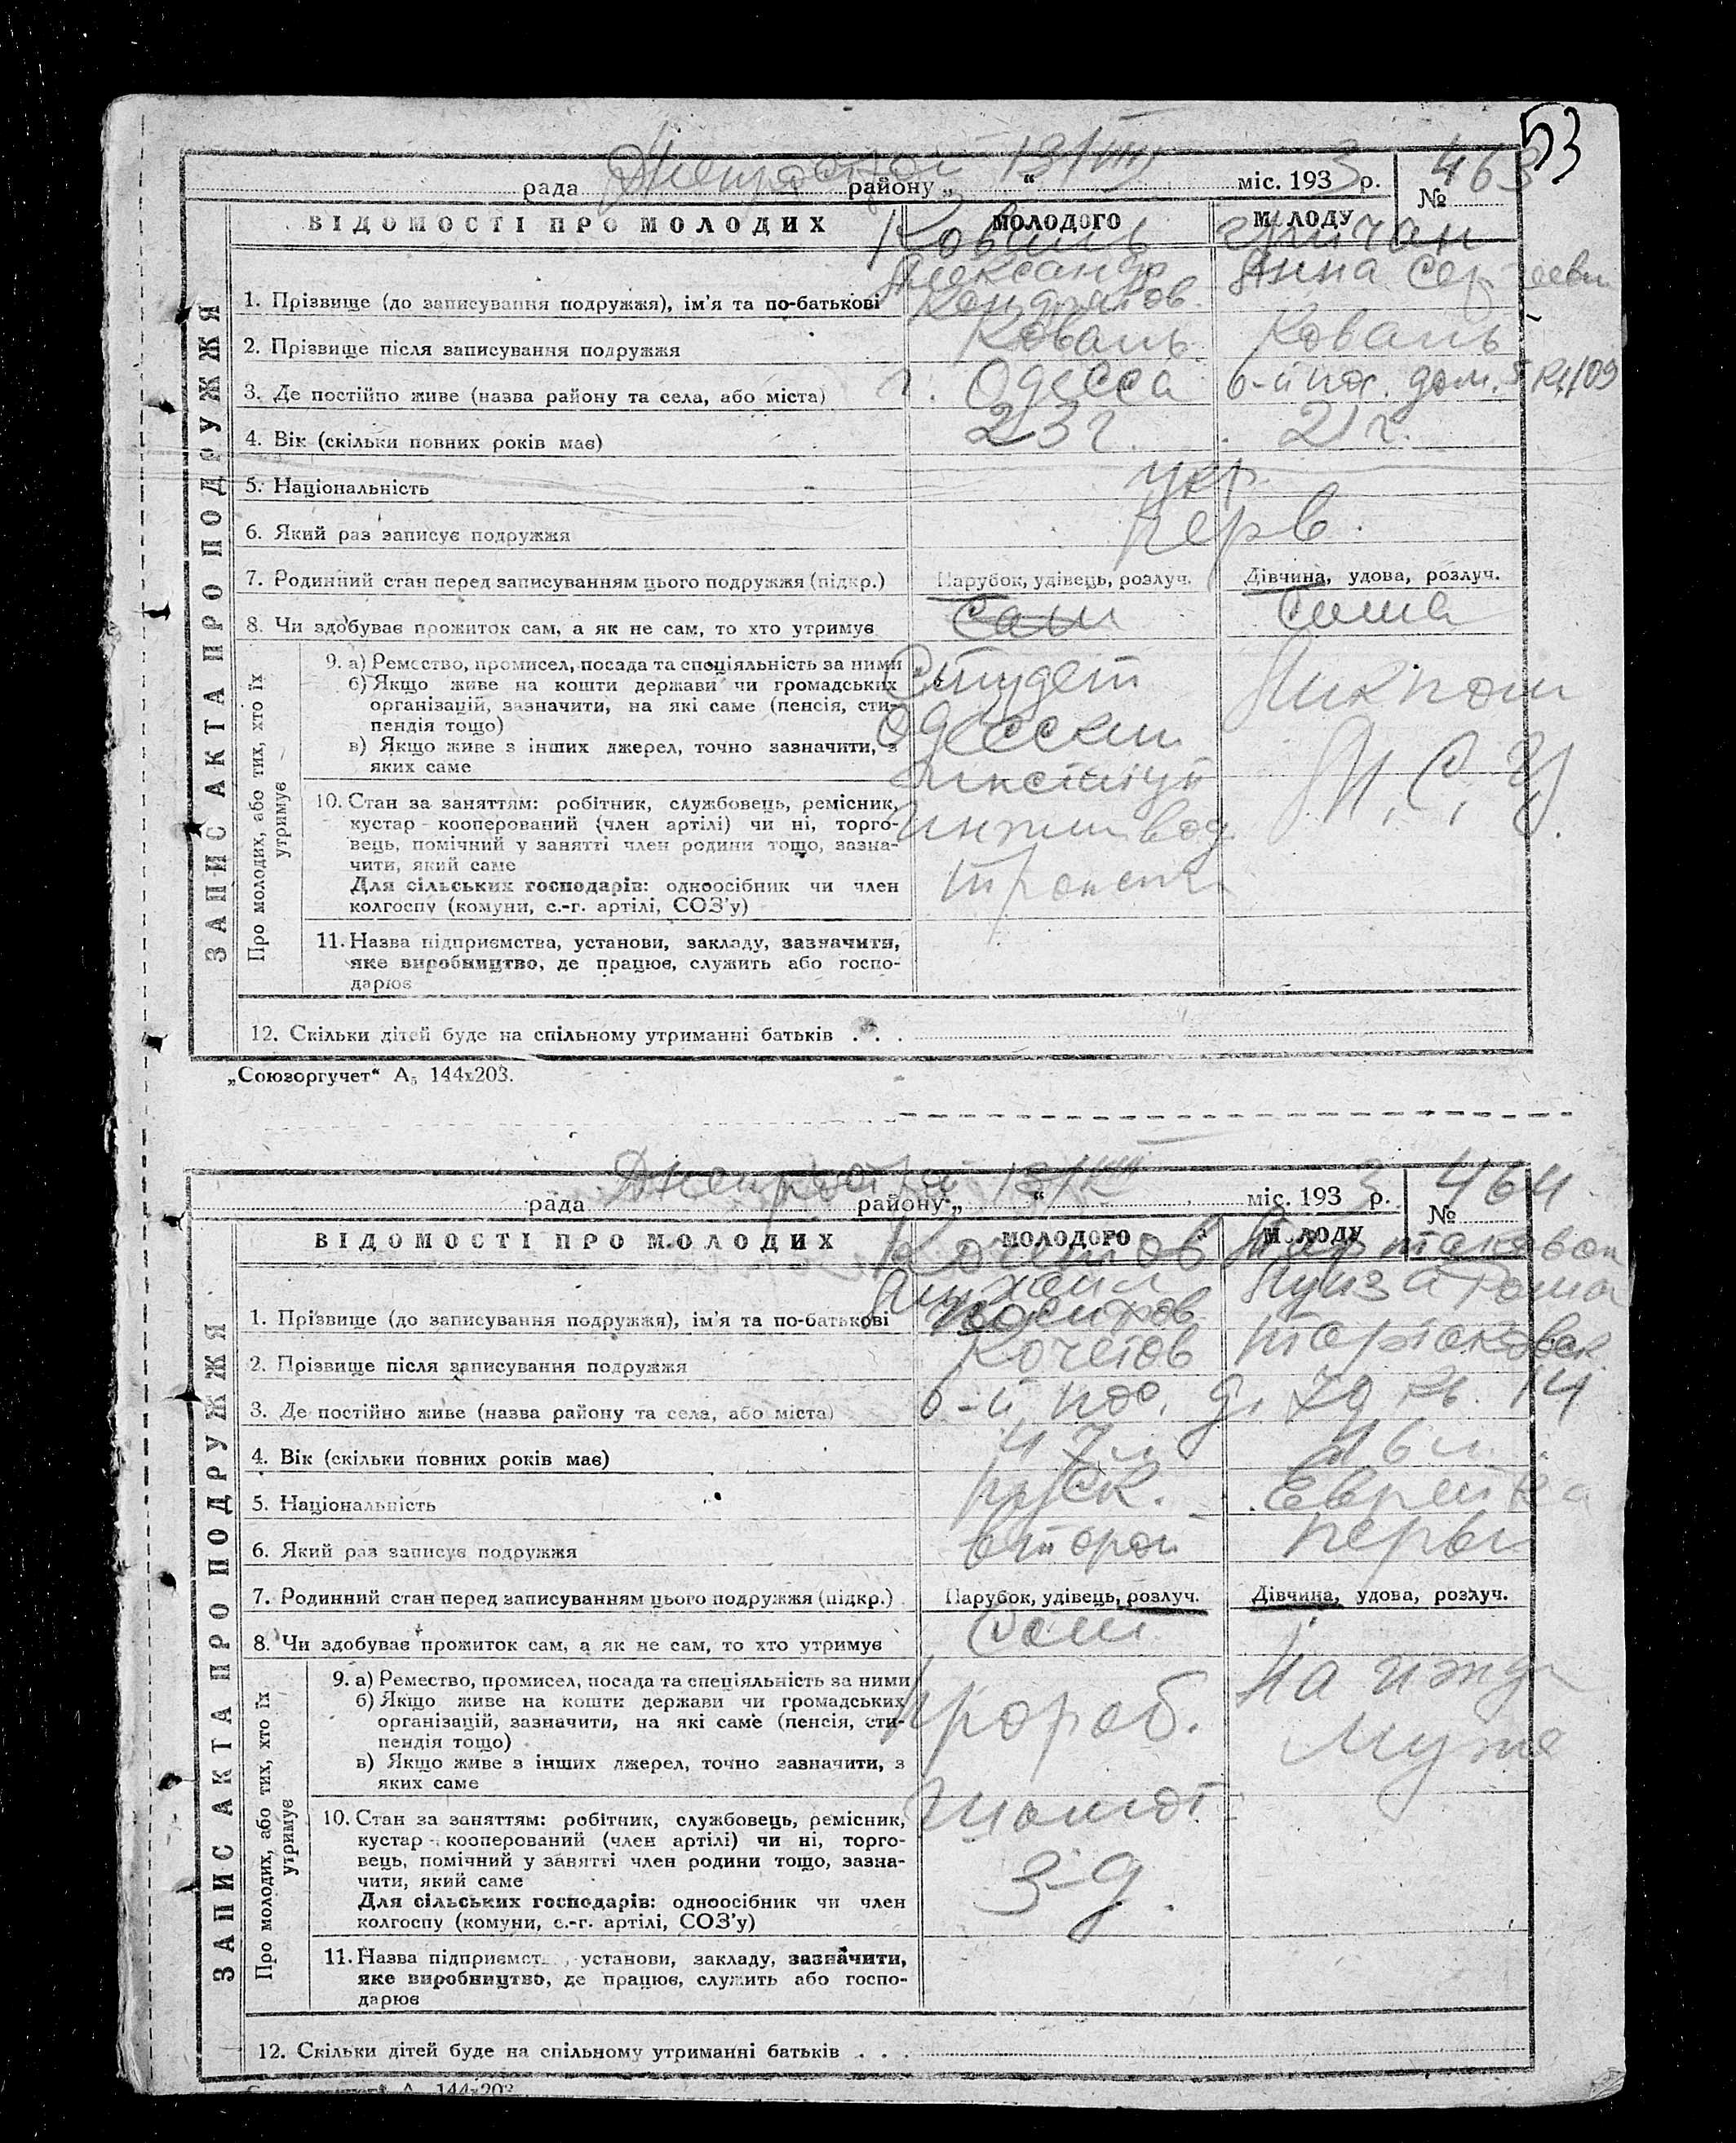 53
Днепрострой 13/VIII 3 463
рада району „ “ міс. 193 р. №
ВІДОМОСТІ ПРО МОЛОДИХ МОЛОДОГО М ЛОДУ
ЗАПИС АКТА ПРО ПОДРУЖЖЯ
Коваль
Александр Анна Сергеевн
1. Прізвище (до записування подружжя), ім'я та по-батькові Кондратов.
2. Прізвище після записування подружжя Коваль Коваль
3. Де постійно живе (назва району та села, або міста) г. Одесса 6-й пос. дом.
4. Вік (скільки повних років має) 23 г. 21 г.
5. Національність укр.
6. Який раз записує подружжя перв.
7. Родинний стан перед записуванням цього подружжя (підкр.) Парубок, удівець, розлуч. Дівчина, удова, розлуч.
8. Чи здобуває прожиток сам, а як не сам, то хто утримує сам сама
Про молодих, або тих, хто їх утримує
9. а) Ремество, промисел, посада та спеціяльність за ними
б) Якщо живе на кошти держави чи громадських
організацій, зазначити, на які саме (пенсія, сти-
пендія тощо)
в) Якщо живе з інших джерел, точно зазначити, з
яких саме
Студент
Одесский
Институт
Инжин вод.
трансп.
Ликпом
10. Стан за заняттям: робітник, службовець, ремісник,
кустар - кооперований (член артілі) чи ні, торго-
вець, помічний у занятті член родини тощо, зазна-
чити, який саме
Для сільських господарів: одноосібник чи член
колгоспу (комуни, с.-г. артілі, СОЗ'у)
11. Назва підприємства, установи, закладу, зазначити,
яке виробництво, де працює, служить або госпо-
дарює
12. Скільки дітей буде на спільному утриманні батьків . . .
„Союзоргучет“ А5 144х203.
Днепрострой 13/VIII 3 464
рада району „ “ міс. 193 р. №
ВІДОМОСТІ ПРО МОЛОДИХ МОЛОДОГО М ЛОДУ
ЗАПИС АКТА ПРО ПОДРУЖЖЯ
Кочетов Тартаковск
Михаил Луиза Рома
1. Прізвище (до записування подружжя), ім'я та по-батькові Иосифов
2. Прізвище після записування подружжя Кочетов Тартаковск
3. Де постійно живе (назва району та села, або міста) 6-й пос. д. 79 кв. 14
4. Вік (скільки повних років має) 47 л
5. Національність руск. Еврейка
6. Який раз записує подружжя второй первы
7. Родинний стан перед записуванням цього подружжя (підкр.) Парубок, удівець, розлуч. Дівчина, удова, розлуч.
8. Чи здобуває прожиток сам, а як не сам, то хто утримує Сам
Про молодих, або тих, хто їх утримує
9. а) Ремество, промисел, посада та спеціяльність за ними
б) Якщо живе на кошти держави чи громадських
організацій, зазначити, на які саме (пенсія, сти-
пендія тощо)
в) Якщо живе з інших джерел, точно зазначити, з
яких саме
прораб.
Шамот.
з-д.
На ижд
мужа
10. Стан за заняттям: робітник, службовець, ремісник,
кустар - кооперований (член артілі) чи ні, торго-
вець, помічний у занятті член родини тощо, зазна-
чити, який саме
Для сільських господарів: одноосібник чи член
колгоспу (комуни, с.-г. артілі, СОЗ'у)
11. Назва підприємст , установи, закладу, зазначити,
яке виробництво, де працює, служить або госпо-
дарює
12. Скільки дітей буде на спільному утриманні батьків . . .